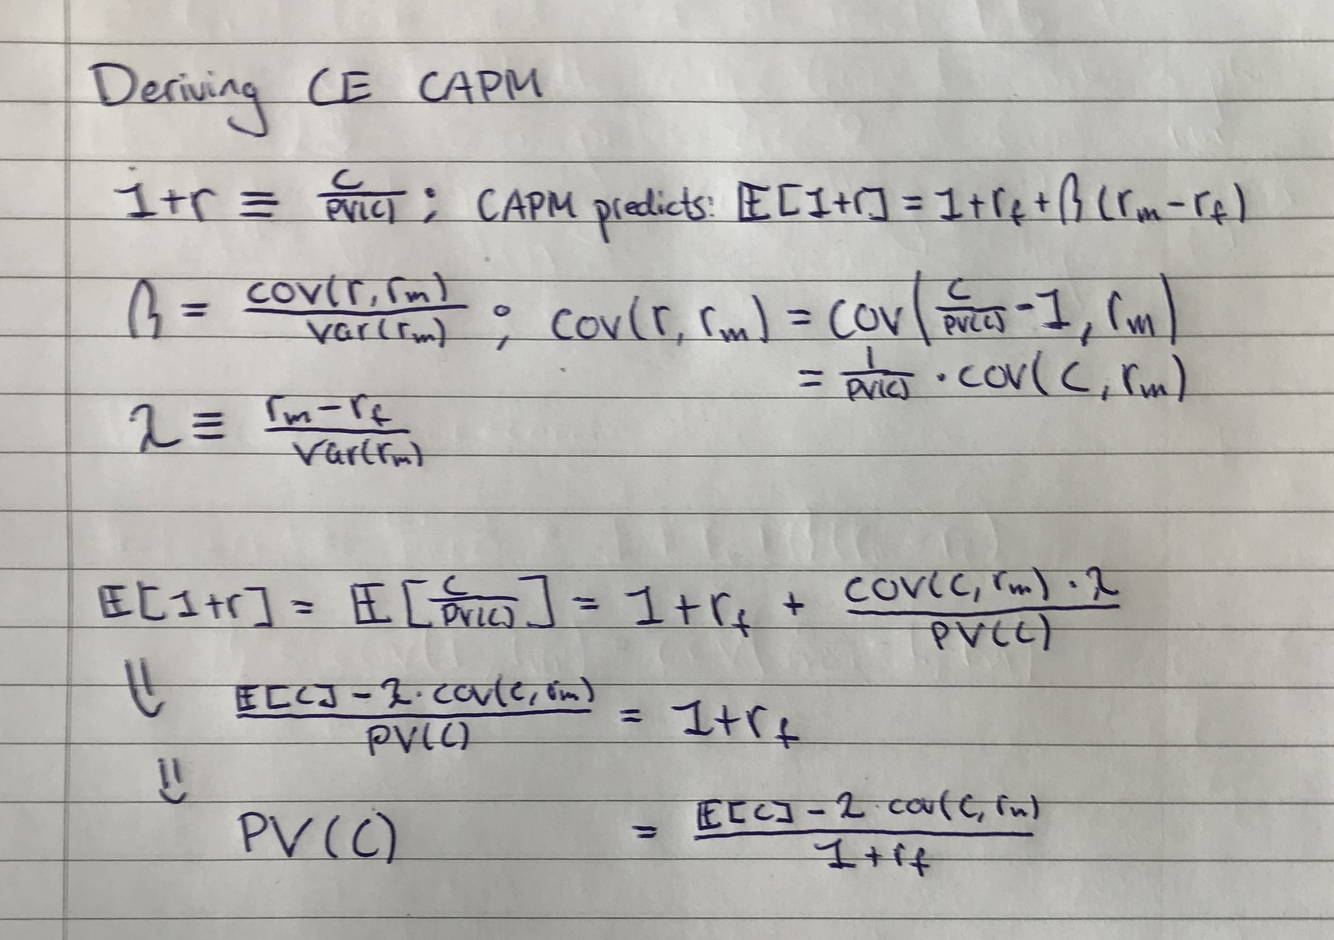 Deriving CE CAPM
1+r ≡ C/PV(C) ; CAPM predicts: 𝔼[1+r] = 1+r_f + β(r_m − r_f)
β = cov(r, r_m)/var(r_m) ; cov(r, r_m) = cov(C/PV(C) − 1, r_m)
= 1/PV(C) · cov(C, r_m)
λ ≡ (r_m − r_f)/var(r_m)
𝔼[1+r] = 𝔼[C/PV(C)] = 1+r_f + (cov(C, r_m) · λ)/PV(C)
⇓ (𝔼[C] − λ · cov(C, r_m))/PV(C) = 1+r_f
⇓
PV(C) = (𝔼[C] − λ · cov(C, r_m))/(1+r_f)